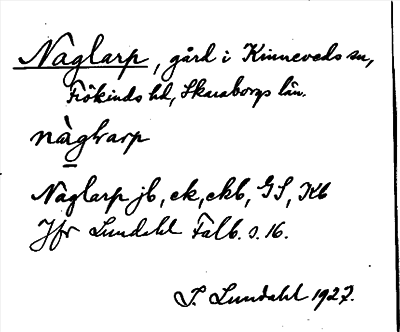 Naglarp, gård i Kinneveds sn,
Frökinds hd, Skaraborgs län.
nàglarp
Naglarp jb, ek, ekb, GS, Kb
Jfr Lundahl Falb. s. 16.
I. Lundahl 1927.